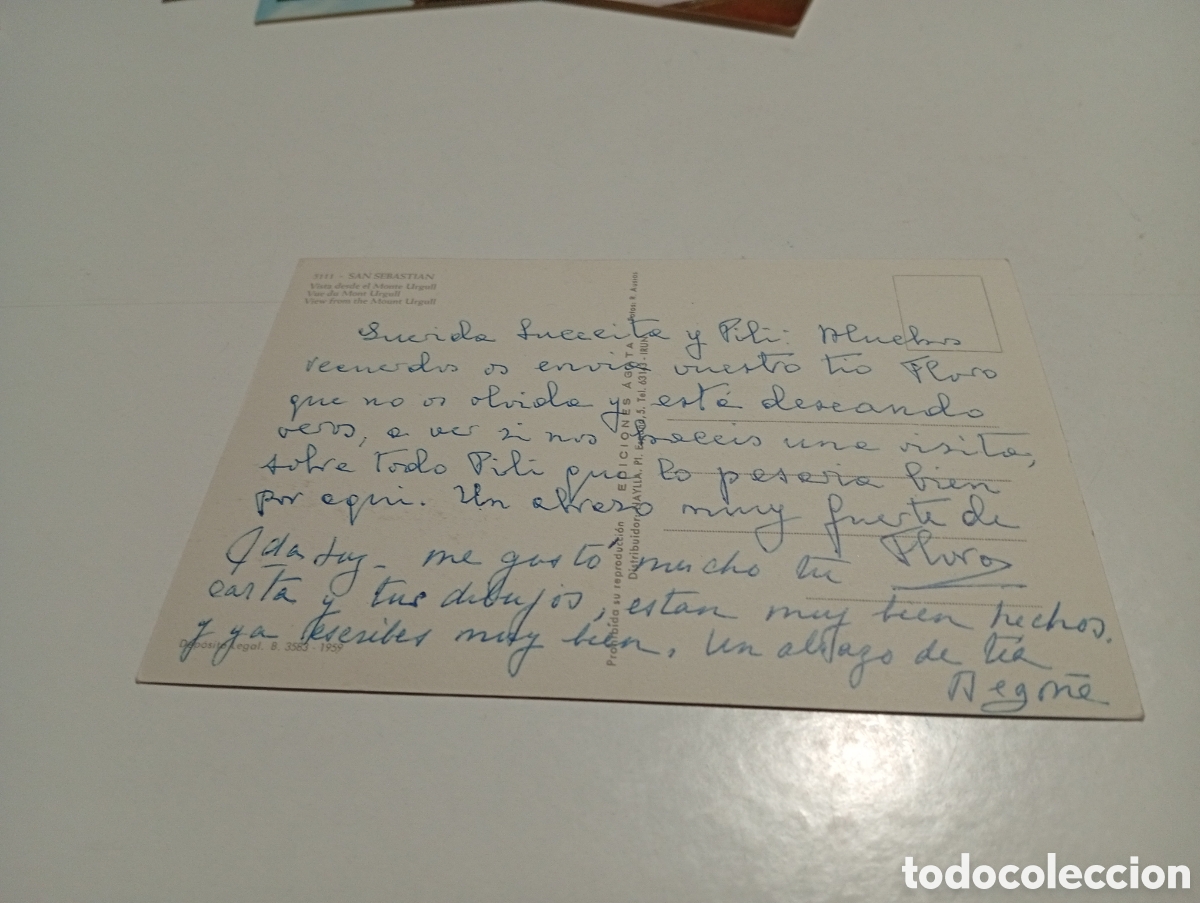 5111 - SAN SEBASTIAN
Vista desde el Monte Urgull
Vue du Mont Urgull
View from the Mount Urgull
y Pili: Muchos
recuerdos os envia vuestro tio Floro
que no os olvida y está deseando
veros, a ver si nos haceis una visita,
sobre todo Pili que lo pasaria bien
por aqui. Un abrazo muy fuerte de
Floro
me gustó mucho tu
carta y tus dibujos, estan muy bien hechos.
y ya escribes muy bien. Un abrazo de tia
Begoña
Depósito Legal. B. 3583 - 1959
Prohibido su reproducción
EDICIONES AGATA
Distribuidor
todocoleccion